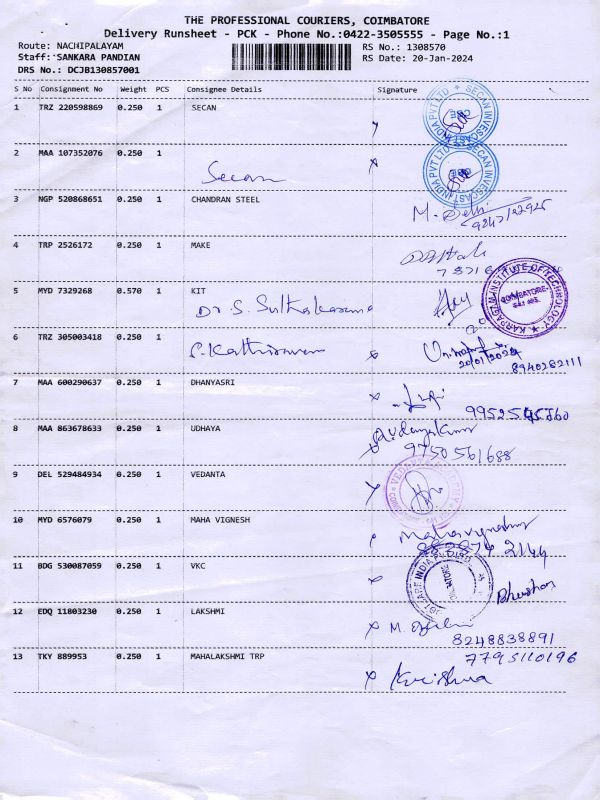 THE PROFESSIONAL COURIERS, COIMBATORE
Delivery Runsheet - PCK - Phone No.:0422-3505555 - Page No.:1
Route: NACHIPALAYAM RS No.: 1308570
Staff: SANKARA PANDIAN RS Date: 20-Jan-2024
DRS No.: DCJB130857001
S No Consignment No Weight PCS Consignee Details Signature
1 TRZ 220598869 0.250 1 SECAN
SECAN INVESCAST INDIA PVT LTD
2 MAA 107352076 0.250 1
Secan
SECAN INVESCAST INDIA PVT LTD
3 NGP 520868651 0.250 1 CHANDRAN STEEL
4 TRP 2526172 0.250 1 MAKE
5 MYD 7329268 0.570 1 KIT
Dr. S.
KARPAGAM INSTITUTE OF TECHNOLOGY
COIMBATORE
6 TRZ 305003418 0.250 1
20/01/2024
8940282111
7 MAA 600290637 0.250 1 DHANYASRI
8 MAA 863678633 0.250 1 UDHAYA
9750561688
9 DEL 529484934 0.250 1 VEDANTA
10 MYD 6576079 0.250 1 MAHA VIGNESH
Mahavignesh
11 BDG 530087059 0.250 1 VKC
Bhushan
12 EDQ 11803230 0.250 1 LAKSHMI
8248838891
13 TKY 889953 0.250 1 MAHALAKSHMI TRP
7795110196
Krishna